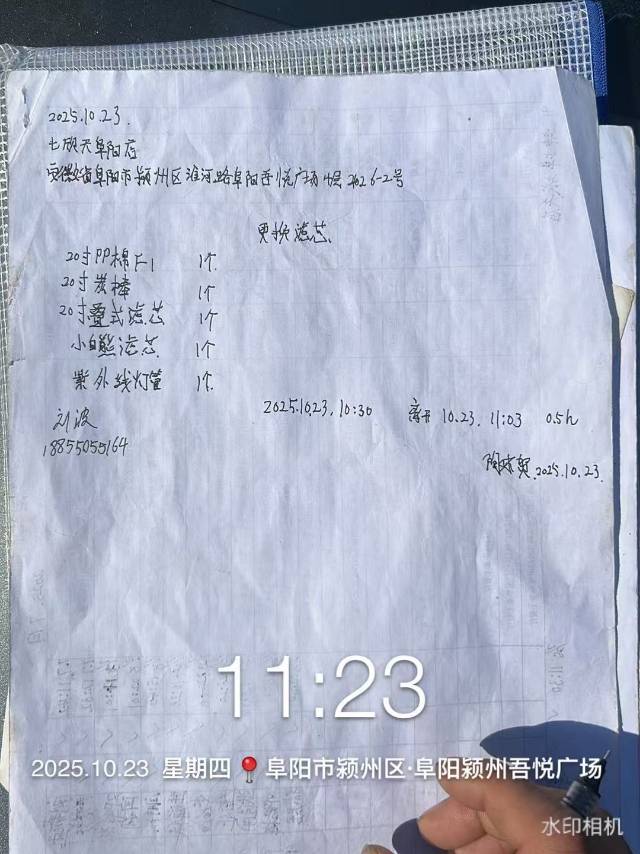 2025.10.23.
七欣天阜阳店
安徽省阜阳市颍州区淮河路阜阳吾悦广场4层2026-2号
更换滤芯
20寸PP棉 1个
20寸炭棒 1个
20寸叠式滤芯 1个
小白熊滤芯 1个
紫外线灯管 1个
刘波 2025.10.23, 10:30 离开 10.23, 11:03 0.5h
18855055164
2025.10.23.
11:30
11:23
2025.10.23 星期四 阜阳市颍州区·阜阳颍州吾悦广场
水印相机